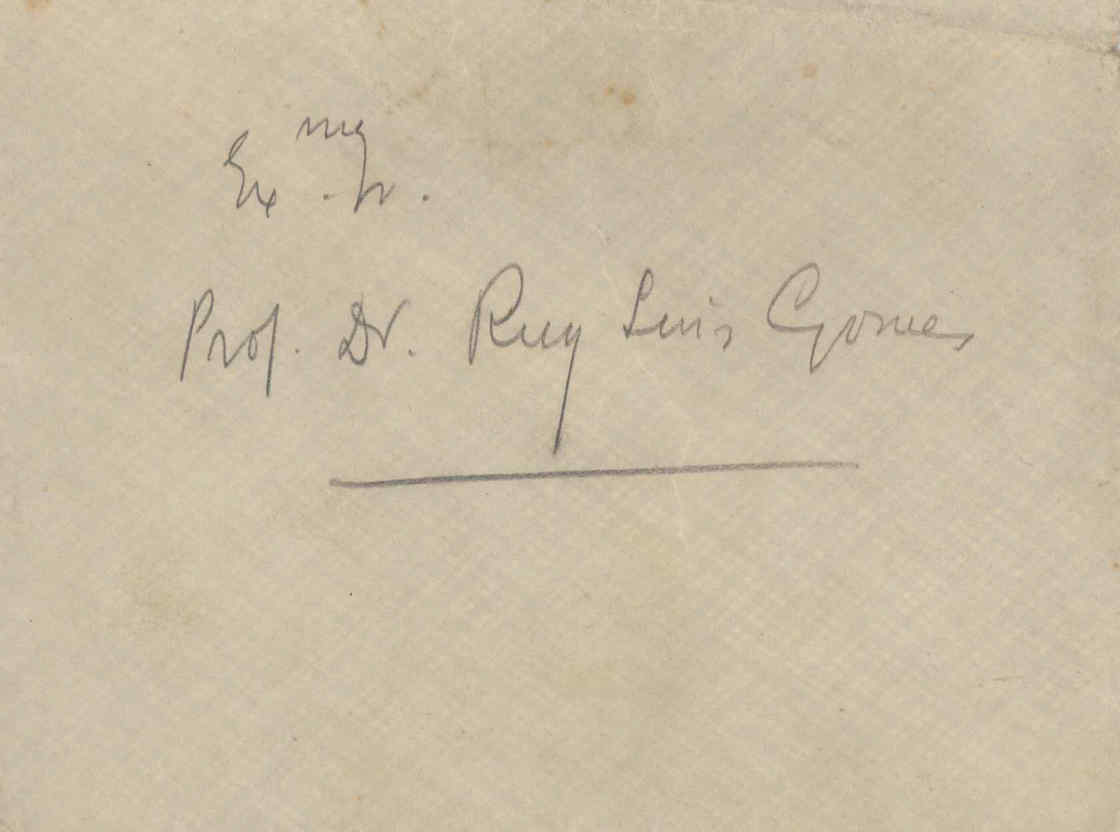 Ex.mo Sr.
Prof. Dr. Ruy Luis Gomes